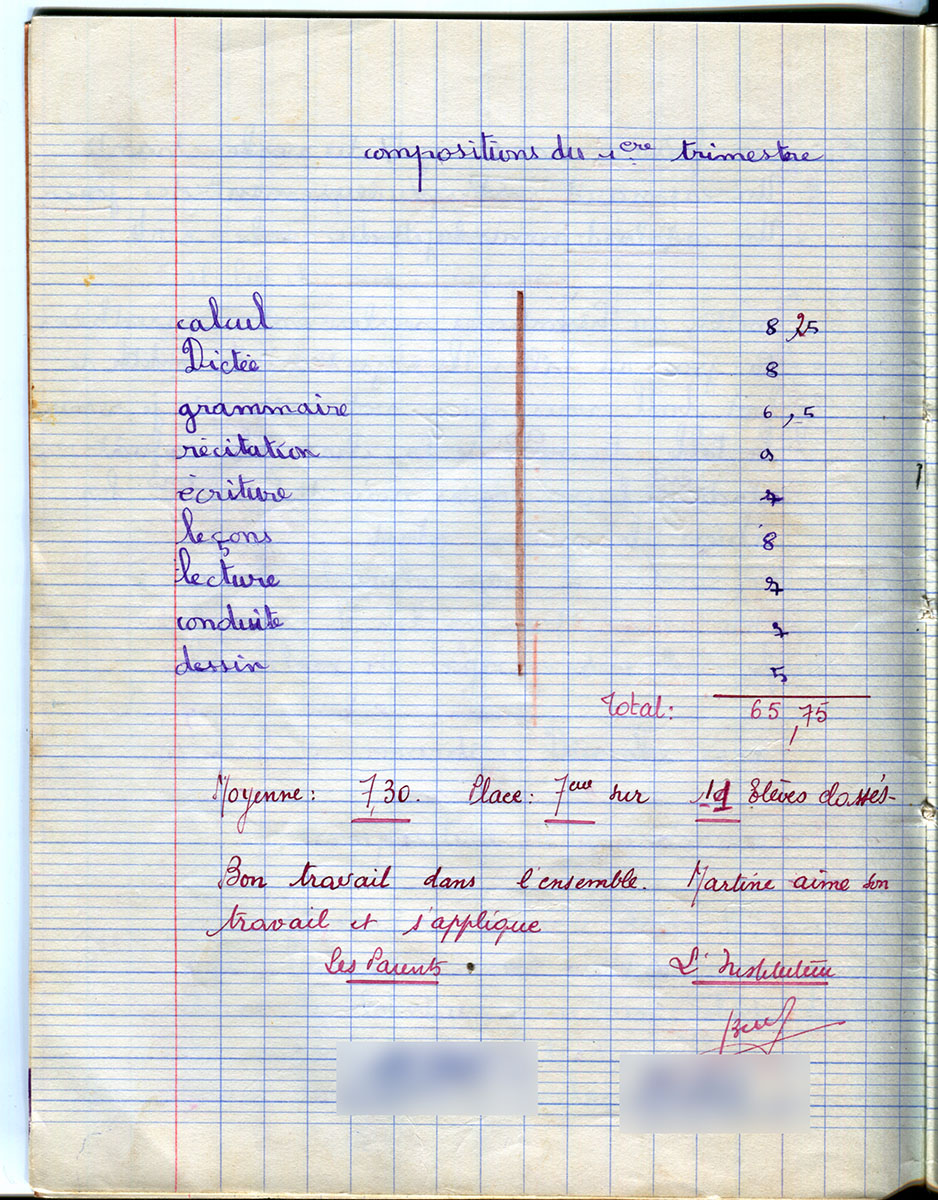 compositions du 1ere trimestre
calcul 8,25
Dictée 8
grammaire 6,5
récitation 9
écriture 7
leçons 8
lecture 7
conduite 7
dessin 5
Total: 65,75
Moyenne: 7,30. Place: 7eme sur élèves classés-
Bon travail dans l'ensemble. Martine aime son
travail et s'applique
Les Parents L'Instituteur